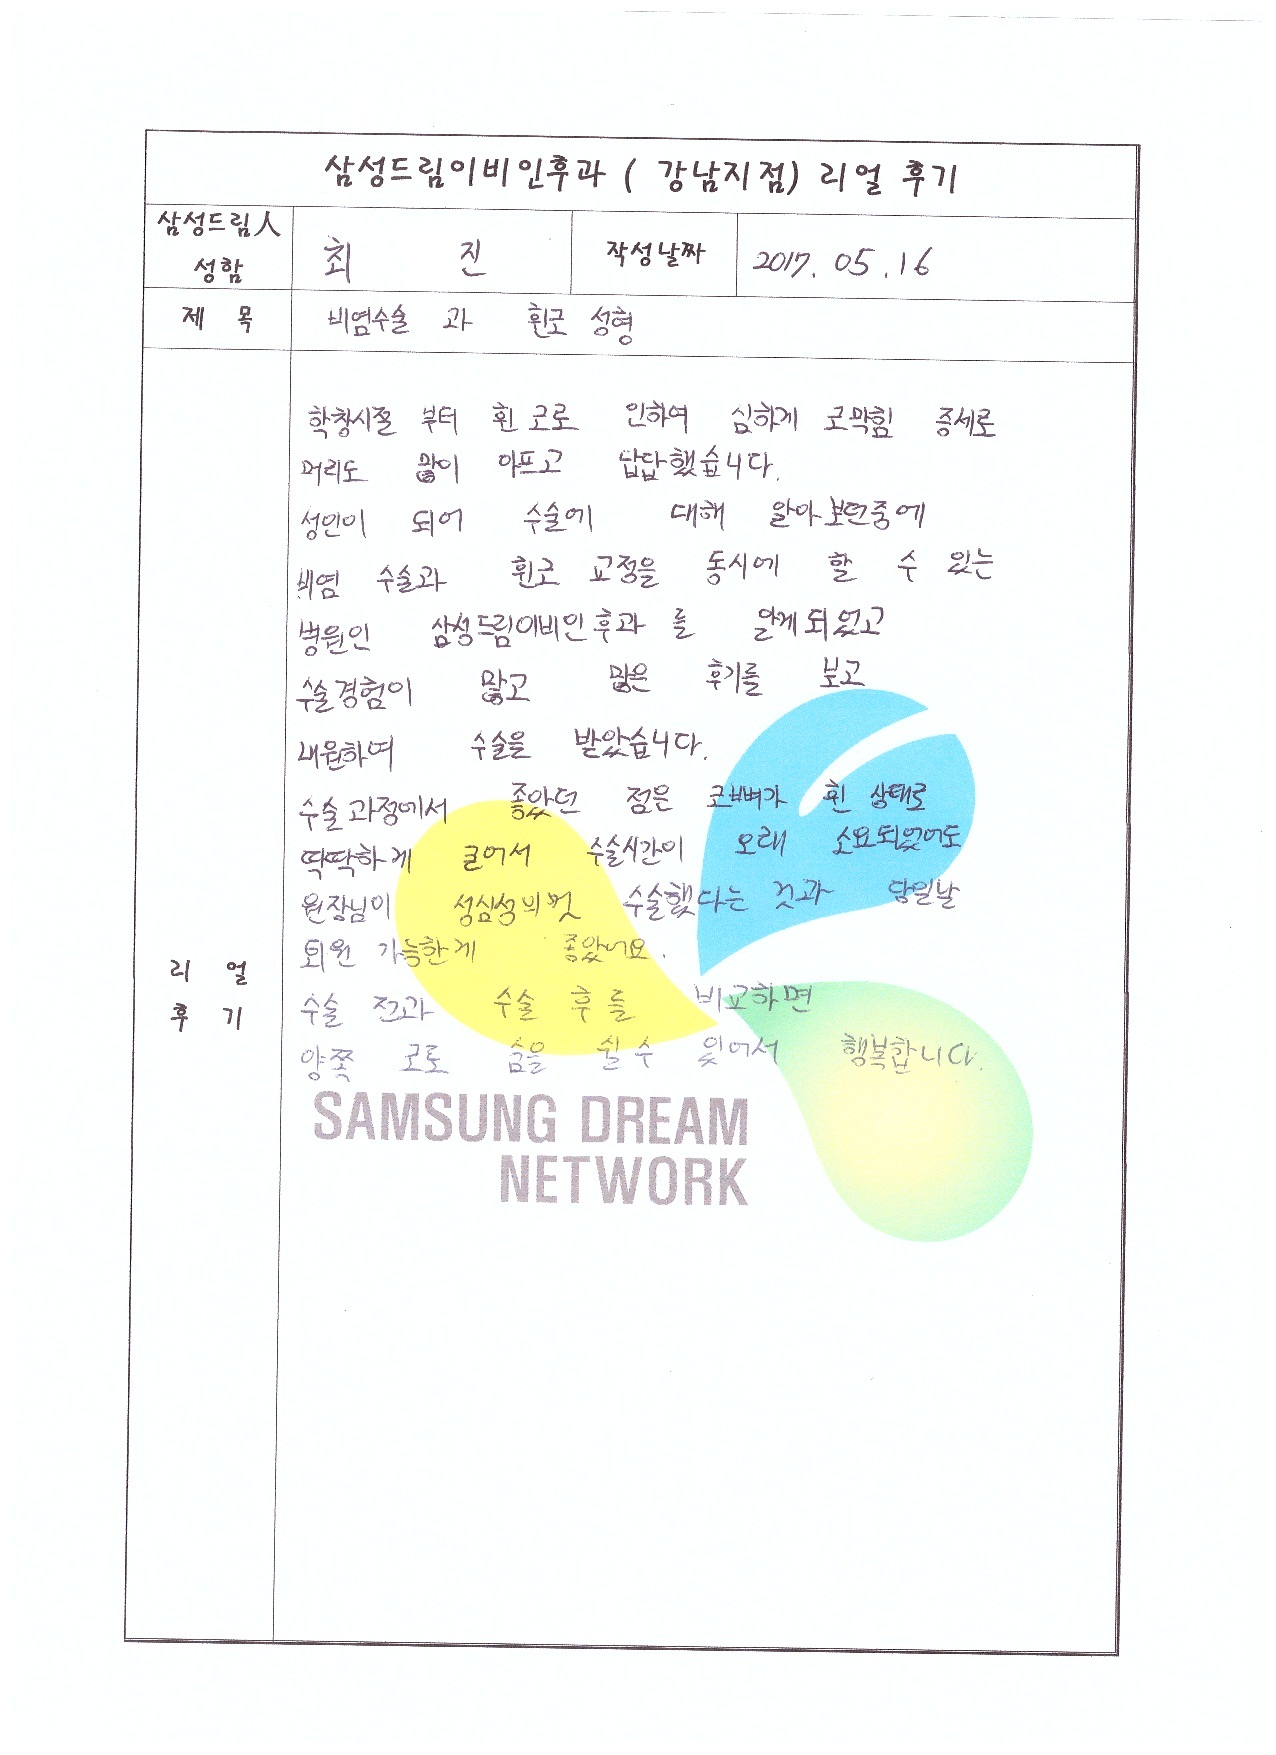 삼성드림이비인후과 ( 강남지점) 리얼 후기
삼성드림人 성함
최 진
작성날짜
2017. 05. 16
제 목
비염수술 과 휜코 성형
리 얼 후 기
학창시절 부터 휜 코로 인하여 심하게 코막힘 증세로
머리도 많이 아프고 답답했습니다.
성인이 되어 수술에 대해 알아보던중에
비염 수술과 휜코 교정을 동시에 할 수 있는
병원인 삼성드림이비인후과 를 알게되었고
수술경험이 많고 많은 후기를 보고
내원하여 수술을 받았습니다.
수술과정에서 좋았던 점은 코뼈가 휜 상태로
딱딱하게 굳어서 수술시간이 오래 소요되었어도
원장님이 성심성의껏 수술했다는 것과 당일날
퇴원 가능한게 좋았어요.
수술 전과 수술 후를 비교하면
양쪽 코로 숨을 쉴수 있어서 행복합니다.
SAMSUNG DREAM
NETWORK